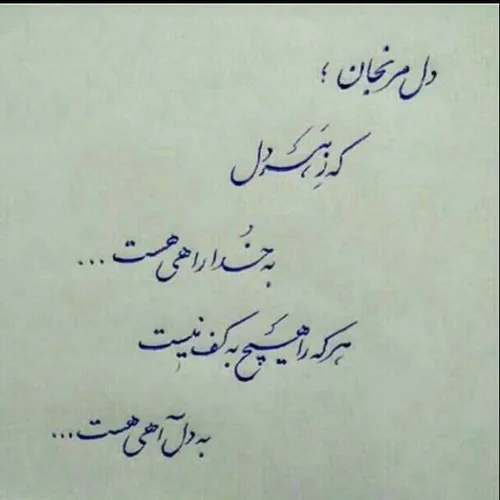 دل مرنجان ؛
که زِ هَر دل
به خُدا راهی هست ...
هر که را هیچ به کف نیست
به دل آهی هست ...